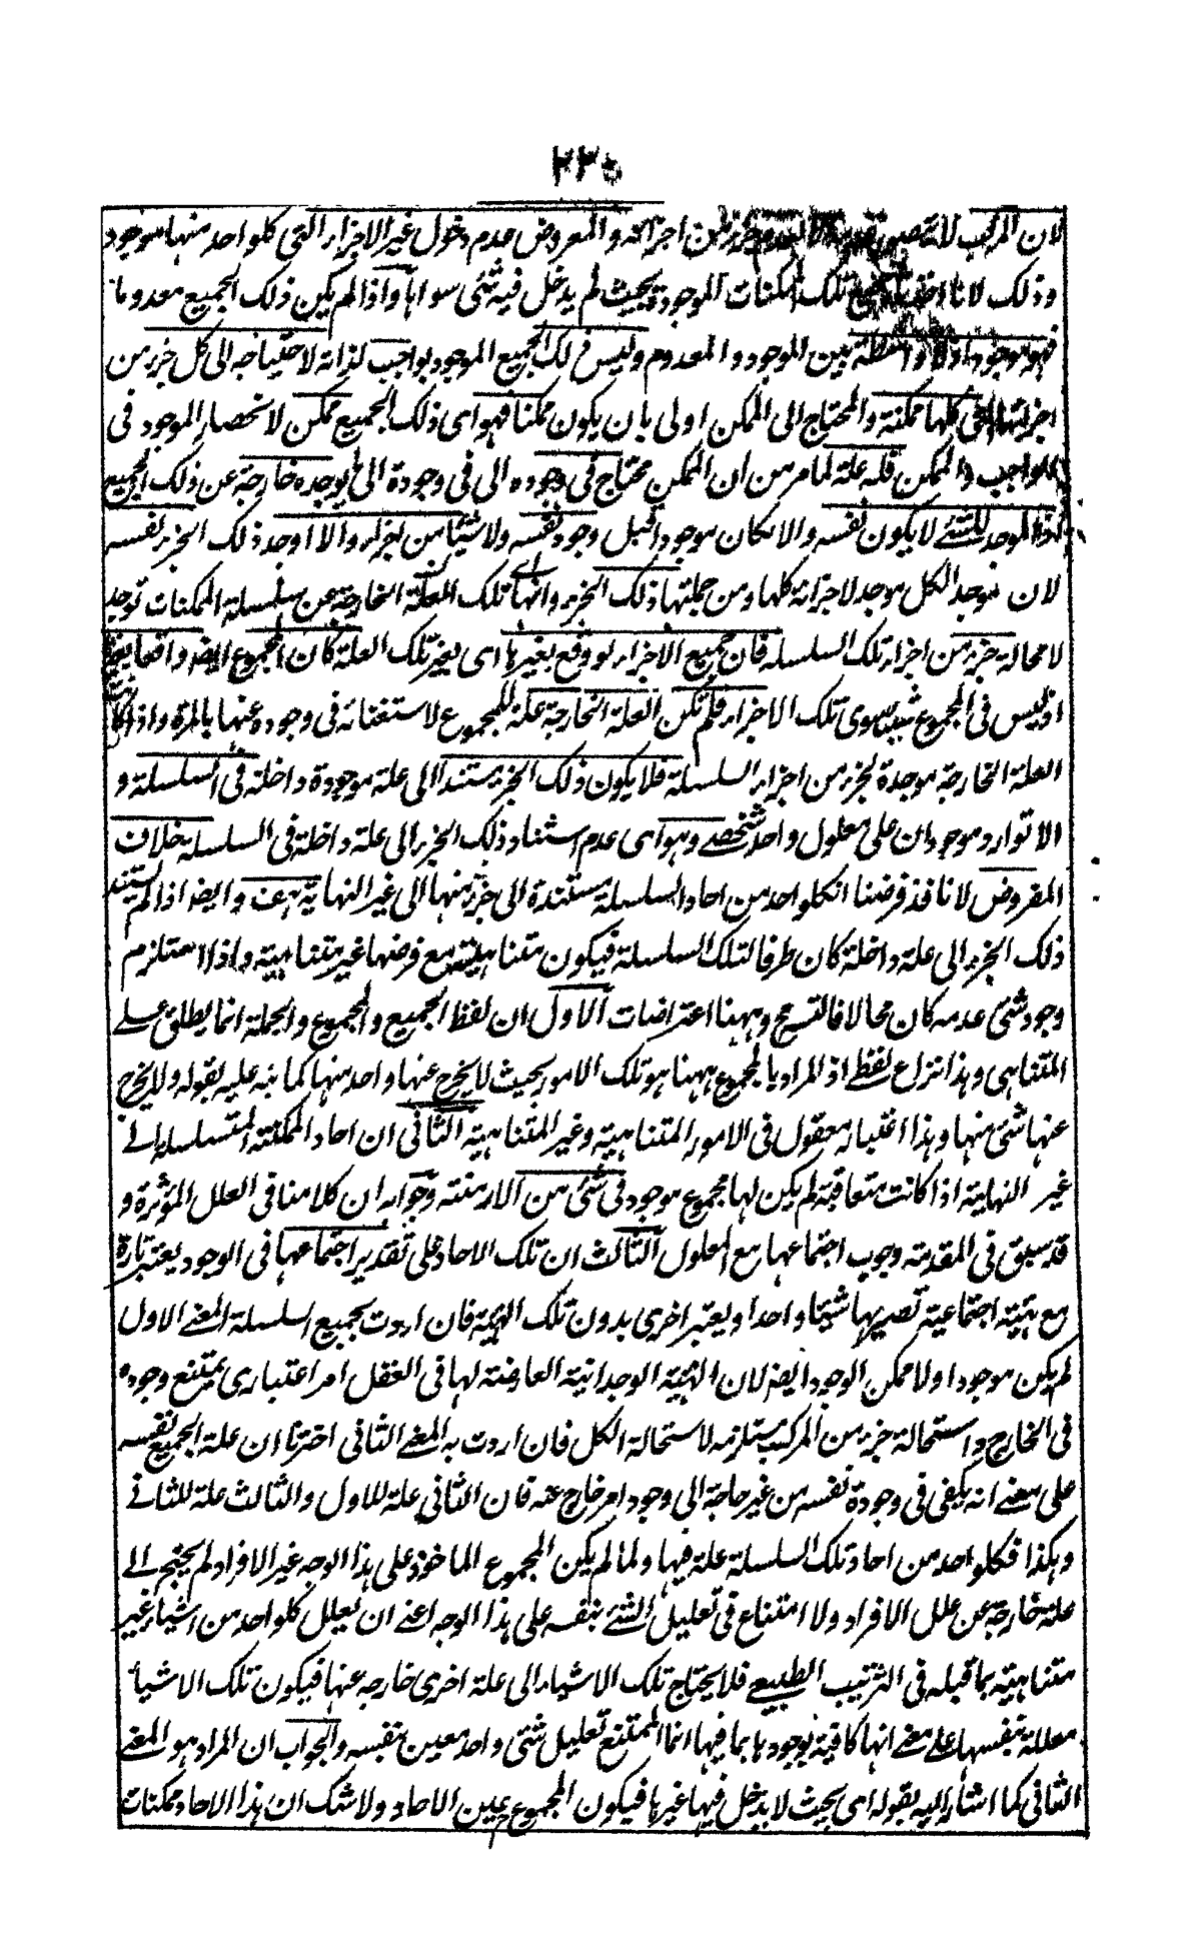 ٢٣٥
لان المركب لا يتصور عدمه الا بعدم جزء من اجزائه والمفروض عدم دخول غير الاجزاء التى كلواحد منها موجود
وذلك لانا اخذنا جميع تلك الممكنات الموجودة بحيث لم يدخل فيه شئ سواها واذا لم يكن ذلك الجميع معدوما
فهو موجود اذ لا واسطة بين الموجود والمعدوم وليس ذلك الجميع الموجود بواجب لذاته لاحتياجه الى كل جزء من
اجزائه التى كلها ممكنة والمحتاج الى الممكن اولى بان يكون ممكنا فهو اى ذلك الجميع ممكن لانحصار الموجود فى
الواجب والممكن فله علة لما مر من ان الممكن محتاج فى وجوده الى فى وجودة الى موجده خارجة عن ذلك الجميع
اذ الموجد للشئ لا يكون نفسه والا لكان موجودا قبل وجود نفسه ولا شيئا من اجزاء والا اوجد ذلك الجزء نفسه
لان موجد الكل موجد لاجزائه كلها ومن جملتها ذلك الجزء وانها اى تلك العلة الخارجة عن سلسلة الممكنات توجد
لا محالة جزء من اجزاء تلك السلسله فان جميع الاجزاء لو وقع بغيرها اى بغير تلك العلة كان المجموع ايضا واقعا بغيرها
اذ ليس فى المجموع شئ سوى تلك الاجزاء فلم تكن العلة الخارجة علة للمجموع لاستغنائه فى وجوده عنها بالمرة واذا كانت
العلة الخارجة موجدة لجزء من اجزاء السلسلة فلا يكون ذلك الجزء مستندا الى علة موجودة داخلة فى السلسلة و
الا توارد موجودان على معلول واحد شخصے وهو اى عدم استناد ذلك الجزء الى علة داخلة فى السلسلة خلاف
المفروض لانا قد فرضنا ان كلواحد من احاد السلسلة مستندة الى جزء منها الى غير النهاية هف وايضا اذا لم يستند
ذلك الجزء الى علة داخلة كان طرفا لتلك السلسلة فيكون متناهية مع فرضها غير متناهية واذا استلزم
وجود شئ عدمه كان محالا فالتسمح وههنا اعتراضات الاول ان لفظ الجميع والمجموع والجملة انما يطلق علے
المتناهى وهذا نزاع لفظے اذ المراد بالمجموع ههنا هو تلك الامور بحيث لا يخرج عنها واحد منها كما نبه عليه بقوله ولا يخرج
عنها شئ منها وهذا اعتبار معقول فى الامور المتناهية وغير المتناهية الثانى ان احاد الممكنة المتسلسلة الے
غير النهاية اذا كانت متعاقبة لم يكن لها مجموع موجود فى شئ من الازمنة وجوابه ان كلامنا فى العلل المؤثرة و
قد سبق فى المقدمة وجوب اجتماعها مع المعلول الثالث ان تلك الاحاد على تقدير اجتماعها فى الوجود يعتبر تارة
مع هيئة اجتماعية تصيربها شيئا واحدا ويعتبر اخرى بدون تلك الهيئة فان اردت بجميع السلسلة المعنے الاول
لم يكن موجودا ولا ممكن الوجود ايضا لان الهيئة الوحدانية العارضة لها فى العقل امر اعتبارى يمتنع وجوده
فى الخارج واستحالة جزء من المركب مستلزمه لاستحالة الكل فان اردت به المعنے الثانى اخترنا ان علة الجميع نفسه
على معنے انه يكفى فى وجودة نفسه من غير حاجة الى وجود امر خارج عنه فان الثانى علة للاول والثالث علة للثانے
وهكذا فكلواحد من احاد تلك السلسلة علة فيها ولما لم يكن المجموع الماخوذ على هذا الوجه غير الافراد لم يحتج الے
علة خارجة عن علل الافراد ولا امتناع فى تعليل الشئ بنفسه على هذا الوجه اعنے ان تعلل كلواحد من اشياء غير
متناهية بما قبله فى الترتيب الطبيعے فلا يحتاج تلك الاشياء الى علة اخرى خارجة عنها فيكون تلك الاشيا
معللة بنفسها على معنے انها كافية بوجودها بما فيها انما الممتنع تعليل شئ واحد معين بنفسه والجواب ان المراد هو المعنے
الثانى كما اشار اليه بقوله اى بحيث لا يدخل فيها غيرها فيكون المجموع عين الاحاد ولا شك ان هذا الاحاد ممكنات